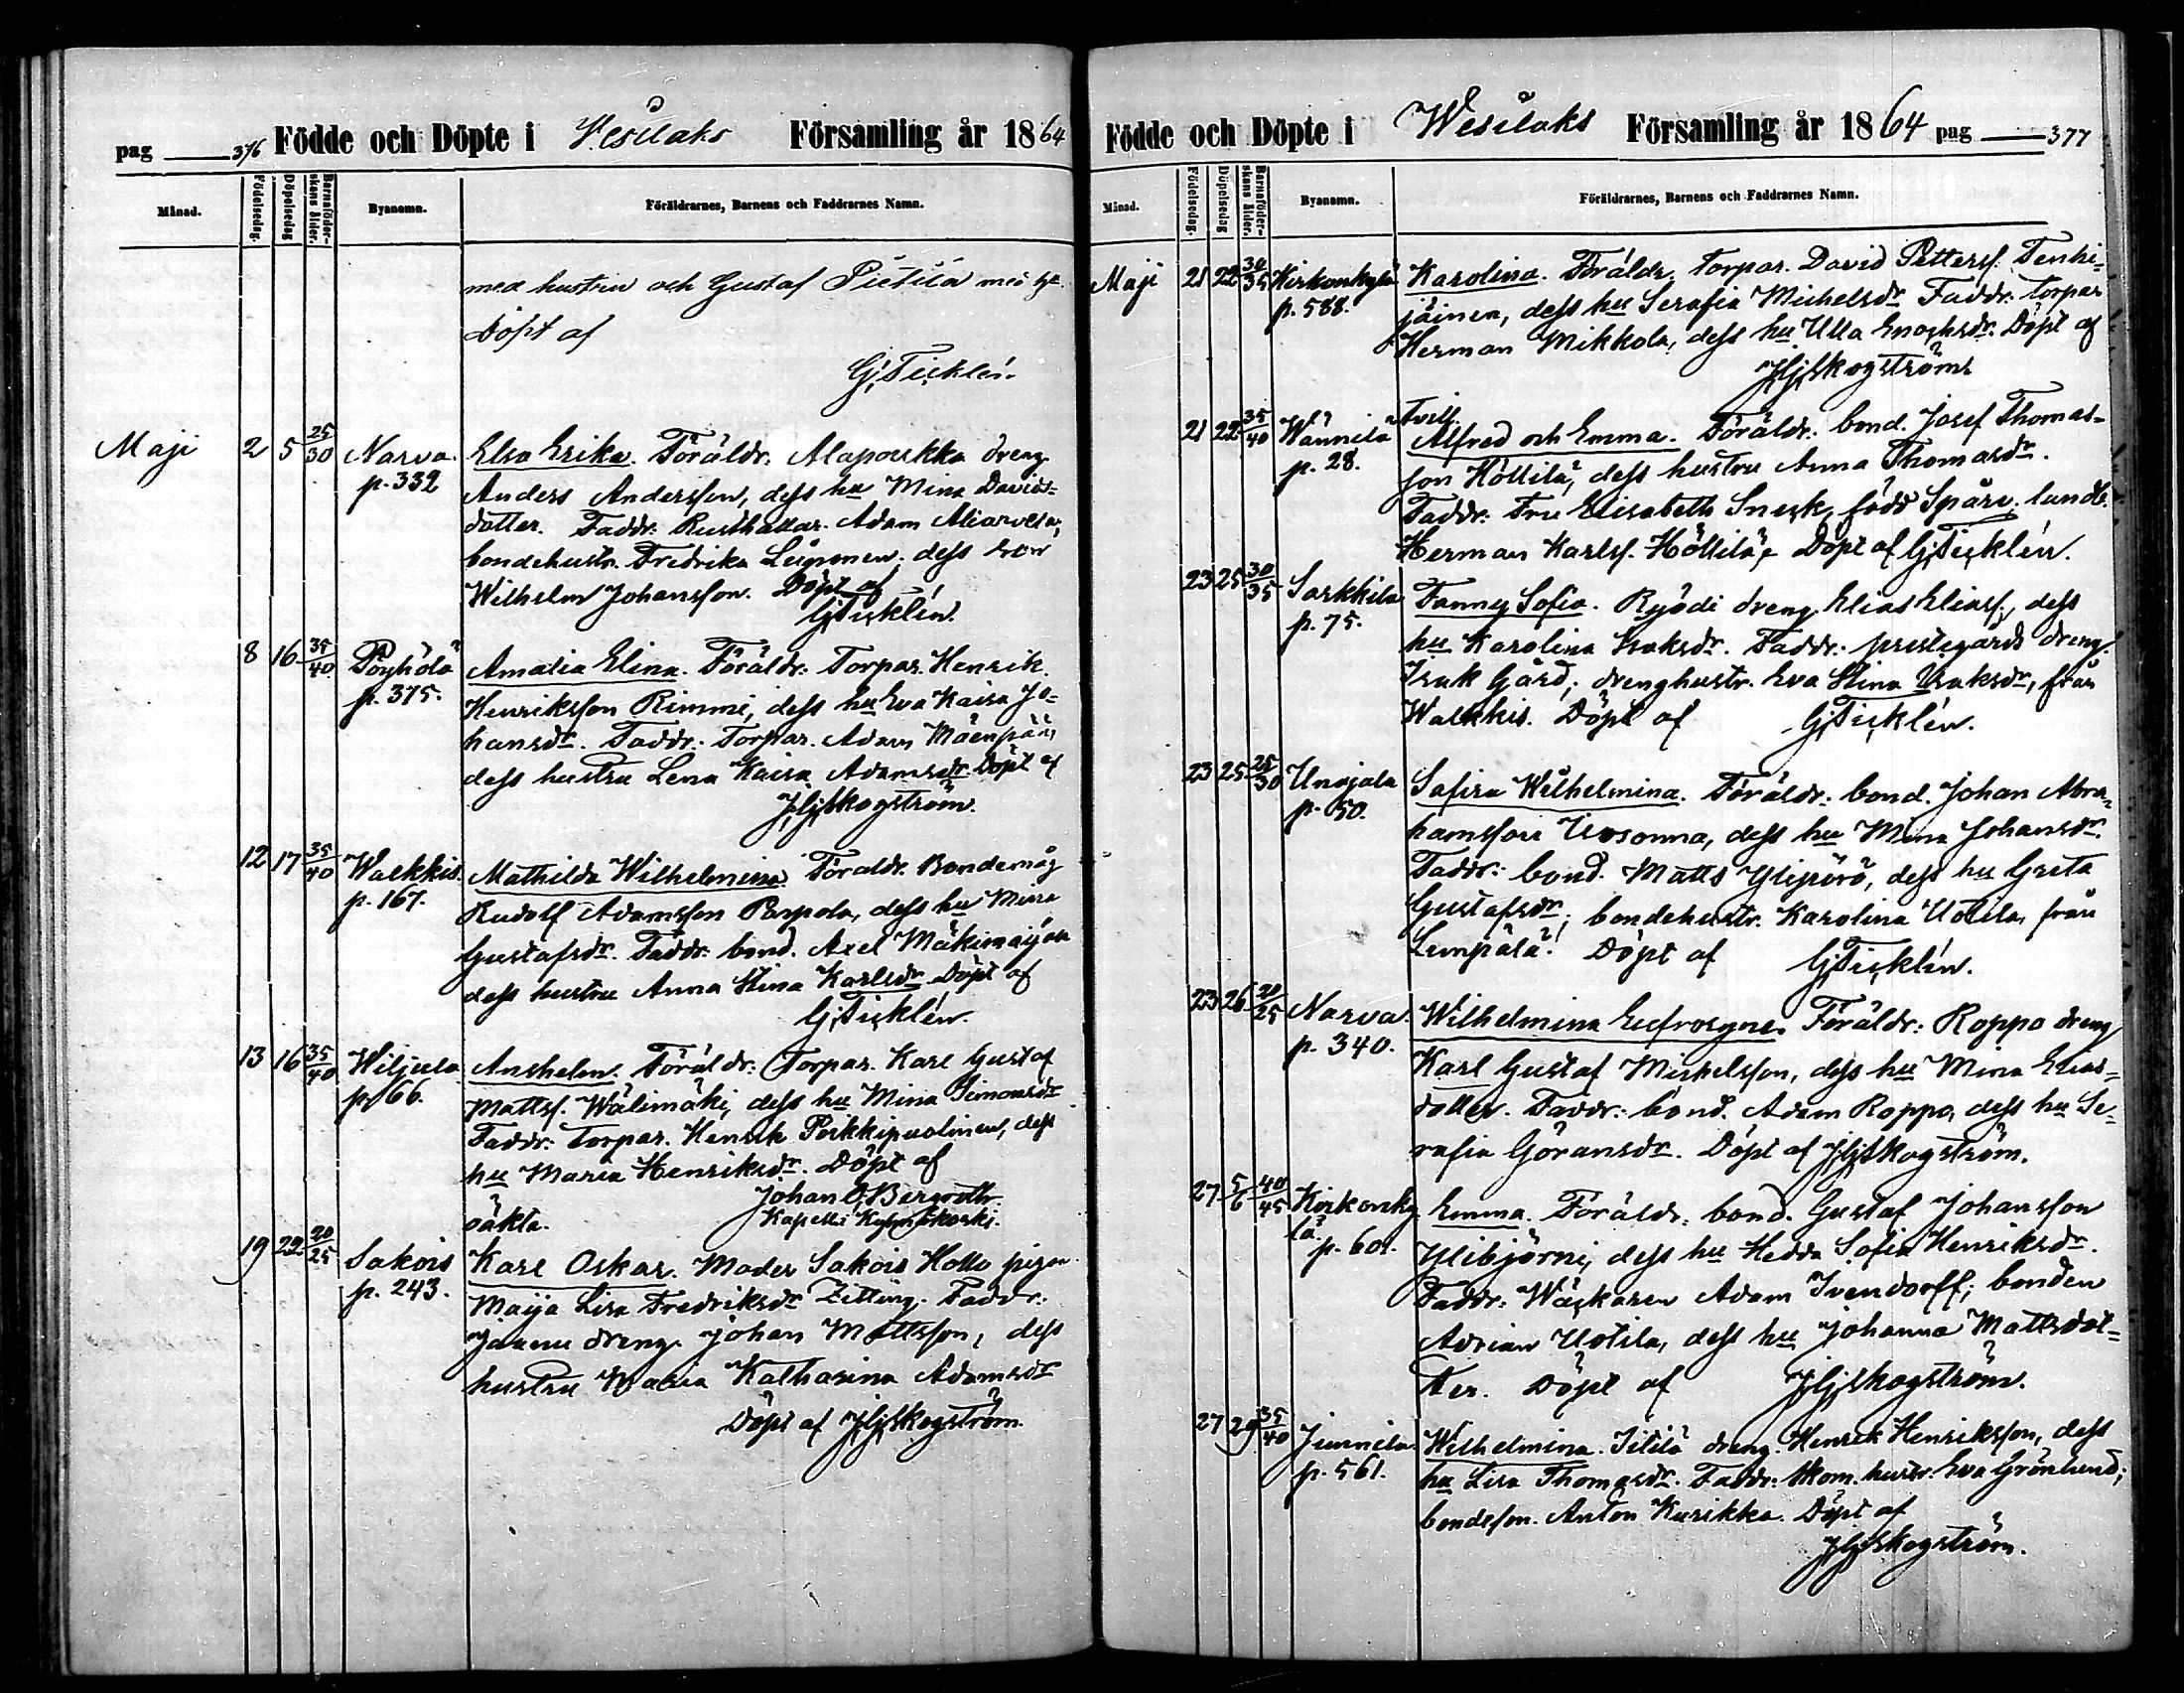 pag 376 Födde och Döpte i Vesilaks Församling år 1864
Månad. Födelsedag. Döpelsedag Barnaföderskans ålder. Byanamn. Föräldrarnes, Barnens och Faddrarnes Namn.
med hustru och Gustaf
Döpt af
G Ticklén.
Maji 2 5 25/30 Narva. Elsa Erika. Föräldr. Alapourkka dreng
p. 332 Anders Andersson, dess hu Mina Davids-
dotter. Faddr: Rusthållar. Adam Aliarvela,
bondehustr. Fredrika dess son
Wilhelm Johansson. Döpt af
G Ticklén.
8 16 35/40 Pöyhölä Amalia Elina. Föräldr: Torpar. Henrik
p. 375. Henriksson Rimmi, dess hu Eva Kaisa Jo-
hansdr. Faddr: Torpar. Adam Mäenpää,
dess hustru Lena Kaisa Adamsdr. Döpt af
Skogström.
12 17 35/40 Walkkis. Mathilda Wilhelmina. Föräldr. Bondemåg
p. 167. Rudolf Adamsson Parpola, dess hu Mina
Gustafsdr. Faddr: bond. Axel
dess hustru Anna Stina Karlsdr. Döpt af
G Ticklén.
13 16 35/40 Wiljula Anshelm. Föräldr: Torpar. Karl Gustaf
p. 66. Mattss. Wälimäki, dess hu Mina Simonsdr
Faddr: Torpar. Henrik Porkkipuolinen, dess
hu Maria Henriksdr. Döpt af
Johan O. Bergroth
oäkta. Kapell: i
19 22 20/25 Sakois Karl Oskar. Moder Sakois Hollo pigan
p. 243. Maija Lisa Fredriksdr Zitting. Faddr:
dreng. Johan Mattsson, dess
hustru Maria Katharina Adamsdr
Döpt af Skogström.
Födde och Döpte i Wesilaks Församling år 1864 pag 377
Månad. Födelsedag. Döpelsedag Barnaföderskans ålder. Byanamn. Föräldrarnes, Barnens och Faddrarnes Namn.
Maji 21 22 30/35 Kirkonkylä Karolina. Föräldr. torpar. David Petterss. Tenhi-
p. 588. jäinen, dess hu Serafia Michelsdr Faddr: torpar
Herman Mikkola, dess hu Ulla Enochsdr. Döpt af
Skogström.
Tvill.
21 22 35/40 Wännilä Alfred och Emma. Föräldr: bond. Josef Thomas-
p. 28. son Höllilä, dess hustru Anna Thomasdr.
Faddr: Fru Elisabeth Sneck, född Spåre;
Herman Karlss. Höllilä; Döpt af G Ticklén.
23 25 30/35 Sarkkila Fanny Sofia. Ryödi dreng Elias Eliass., dess
p. 75. hu Karolina Isaksdr. Faddr: prestegårds dreng.
Isak Gård, drenghustr. Eva Stina Isaksdr, från
Walkkis. Döpt af G Ticklén.
23 25 25/30 Unajala Safira Wilhelmina. Föräldr: bond. Johan Abra-
p. 50. hamsson Isosonna, dess hu Mina Johansdr.
Faddr: bond. Matts Ylipörö, dess hu Greta
Gustafsdr; bondehustr. Karolina Uotila, från
Lempälä. Döpt af G Ticklén.
23 26 20/25 Narva. Wilhelmina Eufrosyne. Föräldr: Roppo dreng
p. 340. Karl Gustaf Michelsson, dess hu Mina Elias-
dotter. Faddr: bond. Adam Roppo, dess hu Se-
rafia Göransdr. Döpt af Skogström.
27 5/6 40/45 Kirkonky Emma. Föräldr: bond. Gustaf Johansson
lä. p. 601. Ylibjörni, dess hu Hedda Sofia Henriksdr.
Faddr: Wäckaren Adam Ivendorff; bonden
Adrian Uotila, dess hu Johanna Mattsdot-
ter. Döpt af Skogström.
27 29 35/40 Junnila Wilhelmina. Iitilä dreng. Henrik Henriksson, dess
p. 561. hu Lisa Thomasdr. Faddr: skom. hustr. Eva Grönlund;
bondeson. Anton Kurikka. Döpt af
Skogström.